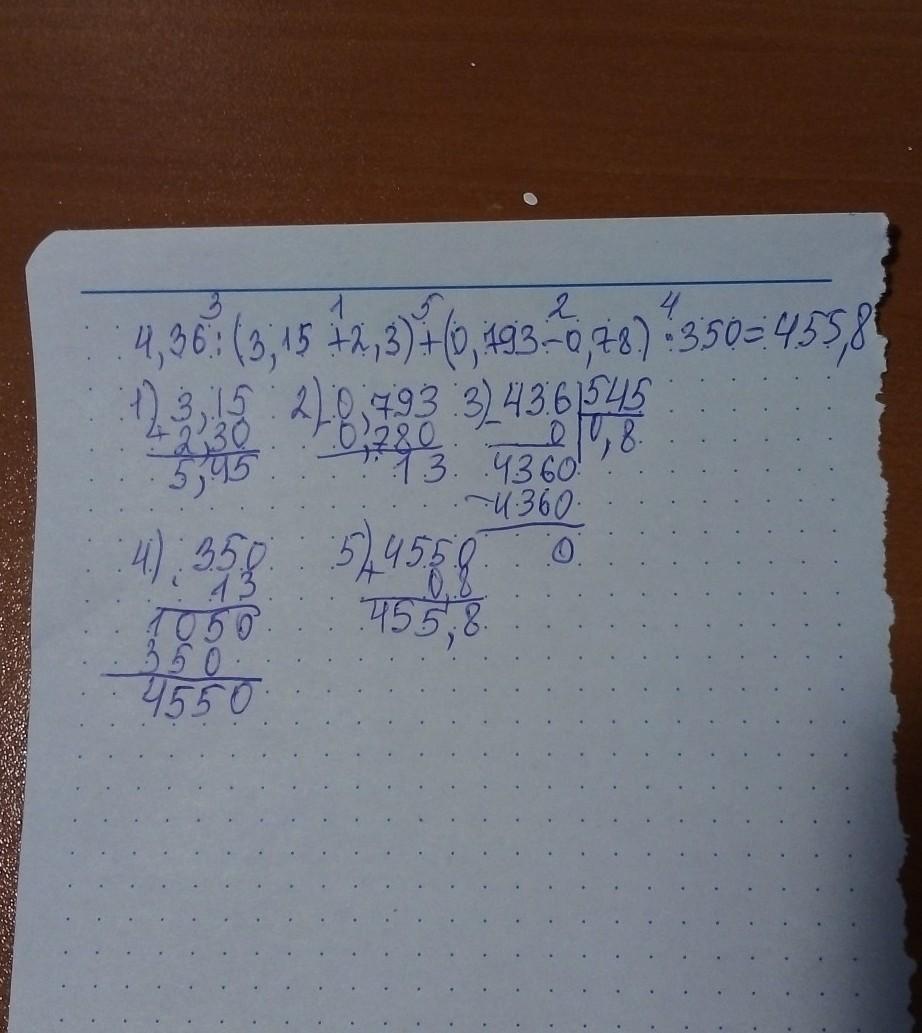 3 1 5 2 4
4,36:(3,15+2,3)+(0,793-0,78)·350=455,8
1) 3,15 2) 0,793 3) 436 |545
+ 2,30 - 0,780 - 0 0,8
5,45 13 4360
-4360
4) . 350 5) 4550 0
13 + 0,8
1050 455,8
350
4550